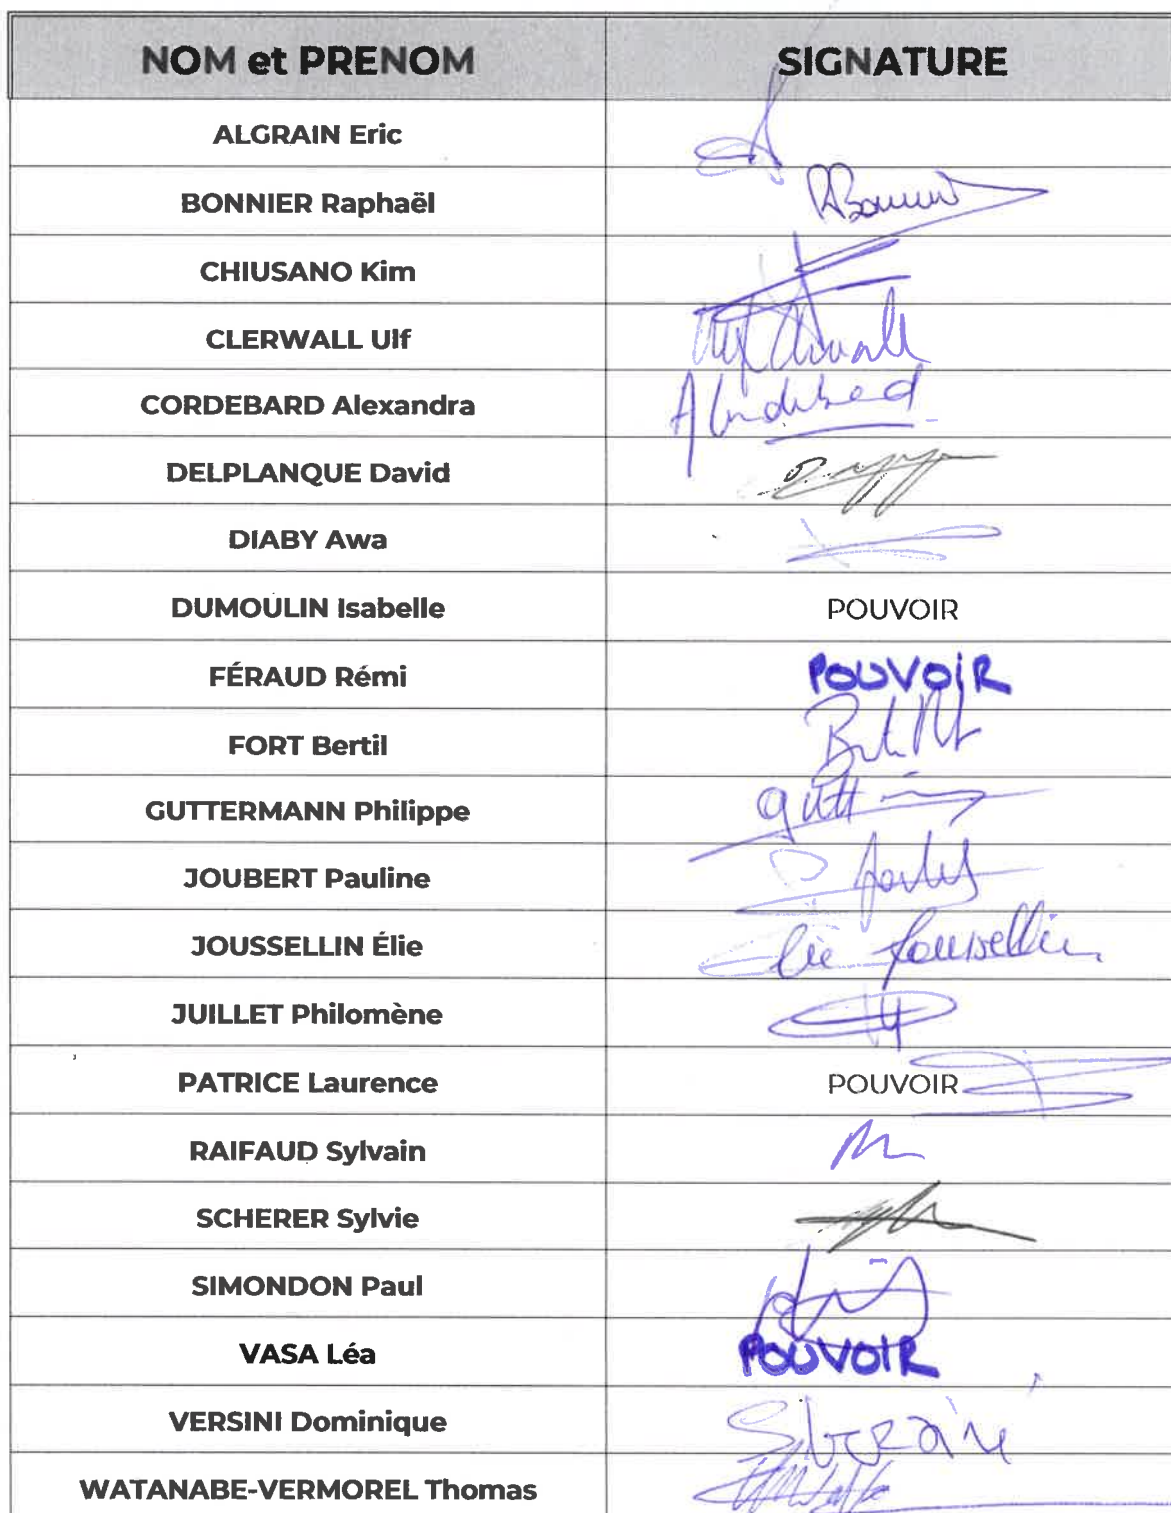 NOM et PRENOM SIGNATURE
ALGRAIN Eric
BONNIER Raphaël RBonnier
CHIUSANO Kim
CLERWALL Ulf Ulf Clerwall
CORDEBARD Alexandra A Cordebard
DELPLANQUE David
DIABY Awa
DUMOULIN Isabelle POUVOIR
FÉRAUD Rémi POUVOIR
FORT Bertil
GUTTERMANN Philippe
JOUBERT Pauline
JOUSSELLIN Élie Élie Jousselin
JUILLET Philomène
PATRICE Laurence POUVOIR
RAIFAUD Sylvain
SCHERER Sylvie
SIMONDON Paul
VASA Léa POUVOIR
VERSINI Dominique
WATANABE-VERMOREL Thomas